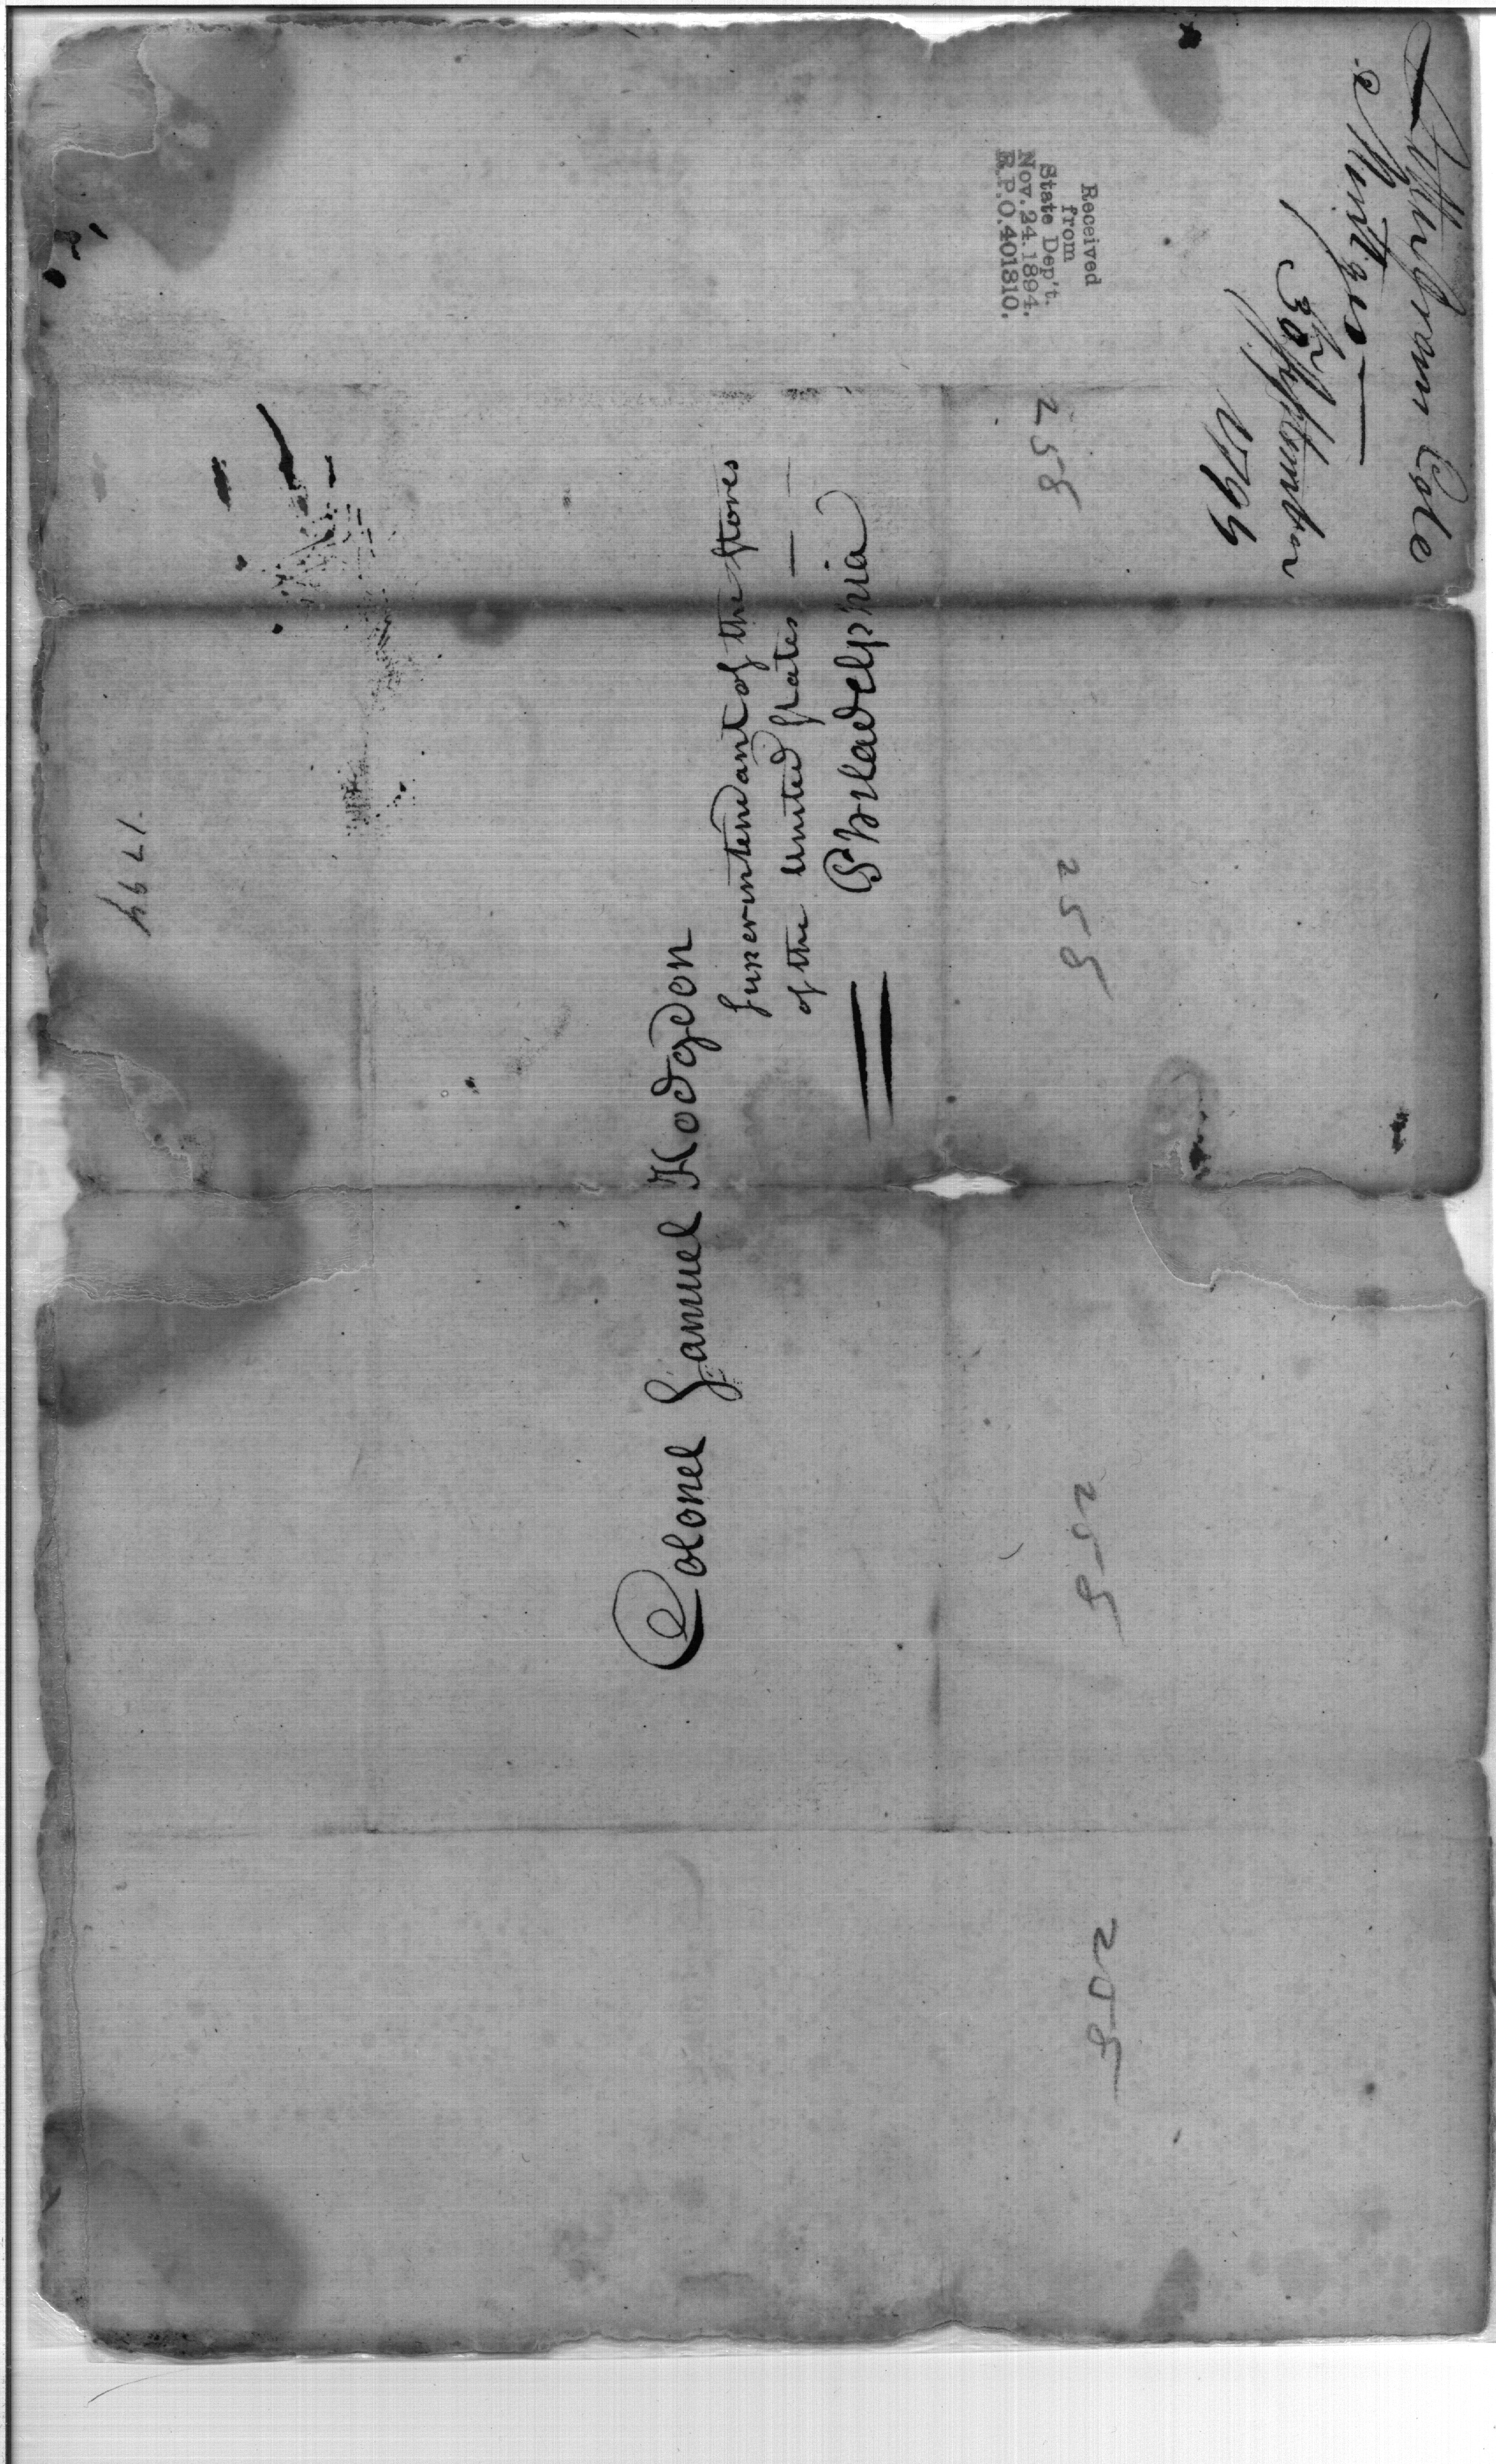 Letter from Colo
Mentges—
30th September
1794
Received
from
State Dep't.
Nov. 24. 1894.
R.P.O. 401810.
258
258
258
258
Colonel Samuel Hodgdon
Superintendant of the Stores
of the United States —
Philadelphia
1794